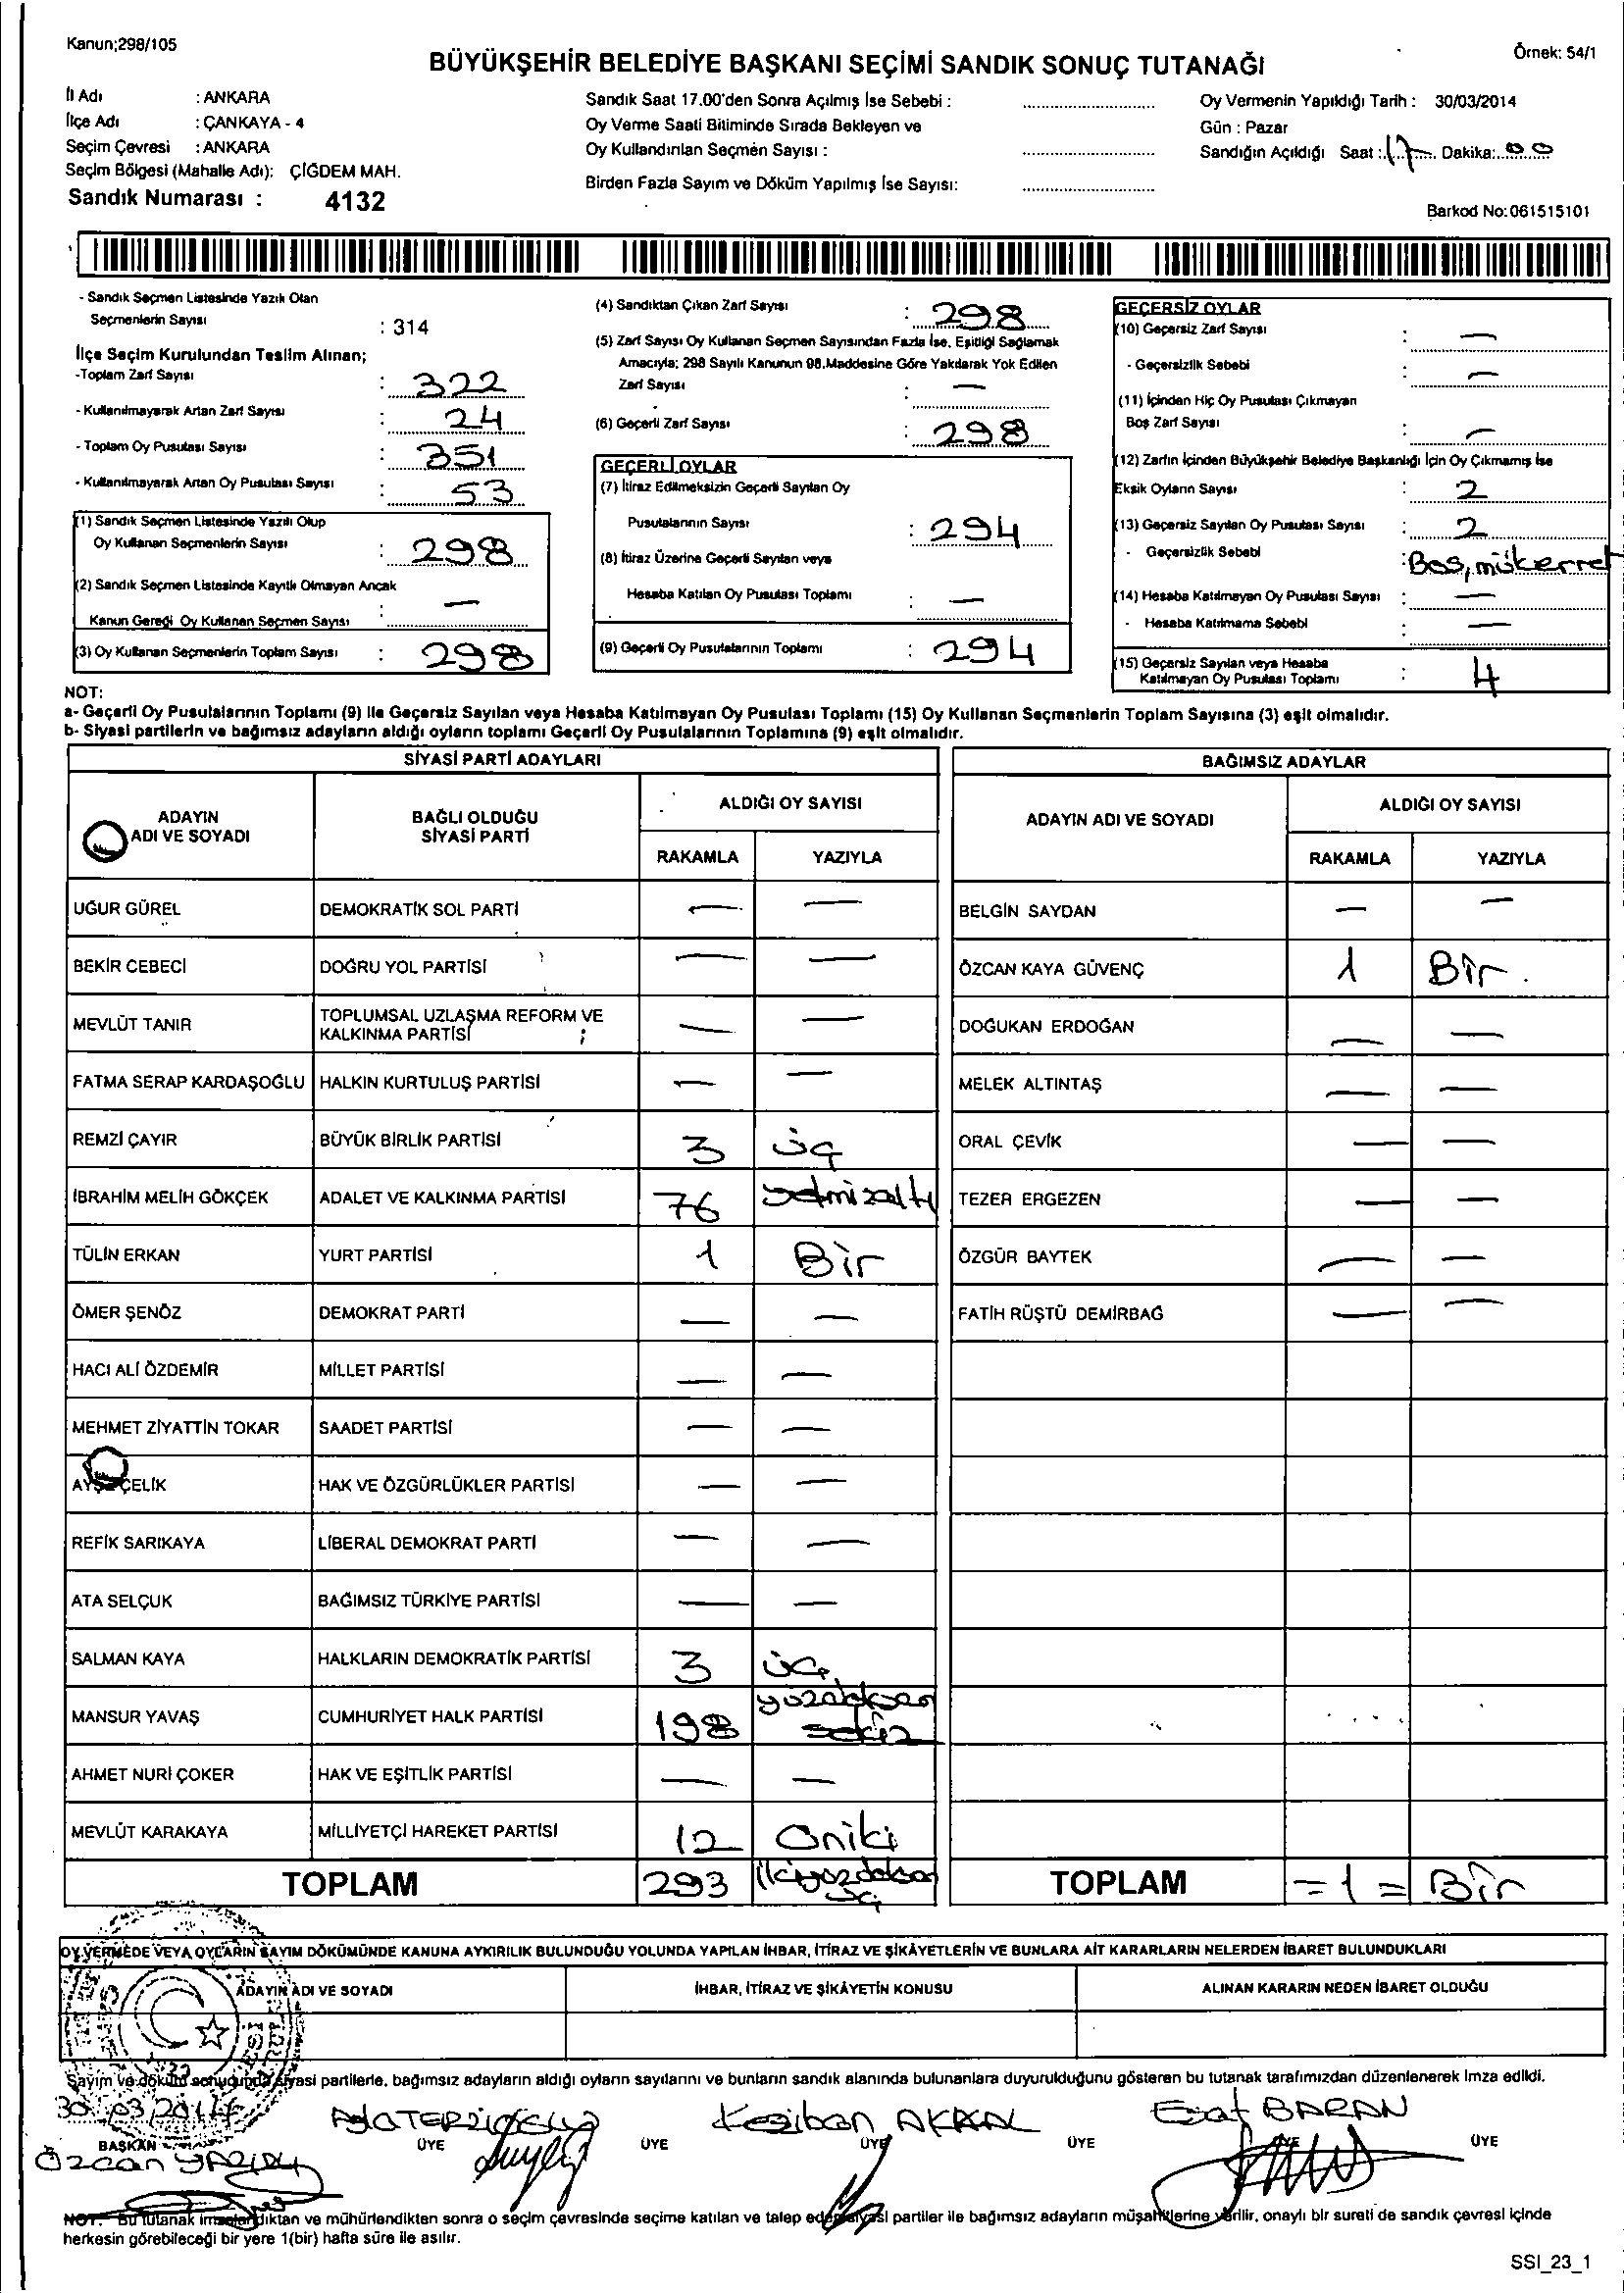 Kanun;298/105
Örnek: 54/1
BÜYÜKŞEHİR BELEDİYE BAŞKANI SEÇİMİ SANDIK SONUÇ TUTANAĞI
İl Adı : ANKARA
İlçe Adı : ÇANKAYA - 4
Seçim Çevresi : ANKARA
Seçim Bölgesi (Mahalle Adı): ÇİĞDEM MAH.
Sandık Numarası : 4132
Sandık Saat 17.00'den Sonra Açılmış İse Sebebi :
Oy Verme Saati Bitiminde Sırada Bekleyen ve
Oy Kullandırılan Seçmen Sayısı :
Birden Fazla Sayım ve Döküm Yapılmış İse Sayısı:
Oy Vermenin Yapıldığı Tarih : 30/03/2014
Gün : Pazar
Sandığın Açıldığı Saat : 17 Dakika: 00
Barkod No:061515101
- Sandık Seçmen Listesinde Yazılı Olan
Seçmenlerin Sayısı : 314
İlçe Seçim Kurulundan Teslim Alınan;
-Toplam Zarf Sayısı : 322
- Kullanılmayarak Artan Zarf Sayısı : 24
- Toplam Oy Pusulası Sayısı : 351
- Kullanılmayarak Artan Oy Pusulası Sayısı : 53
(1) Sandık Seçmen Listesinde Yazılı Olup
Oy Kullanan Seçmenlerin Sayısı : 298
(2) Sandık Seçmen Listesinde Kayıtlı Olmayan Ancak
Kanun Gereği Oy Kullanan Seçmen Sayısı : —
(3) Oy Kullanan Seçmenlerin Toplam Sayısı : 298
(4) Sandıktan Çıkan Zarf Sayısı : 298
(5) Zarf Sayısı Oy Kullanan Seçmen Sayısından Fazla İse, Eşitliği Sağlamak
Amacıyla; 298 Sayılı Kanunun 98.Maddesine Göre Yakılarak Yok Edilen
Zarf Sayısı : —
(6) Geçerli Zarf Sayısı : 298
GEÇERLİ OYLAR
(7) İtiraz Edilmeksizin Geçerli Sayılan Oy
Pusulalarının Sayısı : 294
(8) İtiraz Üzerine Geçerli Sayılan veya
Hesaba Katılan Oy Pusulası Toplamı : —
(9) Geçerli Oy Pusulalarının Toplamı : 294
GEÇERSİZ OYLAR
(10) Geçersiz Zarf Sayısı : —
- Geçersizlik Sebebi : —
(11) İçinden Hiç Oy Pusulası Çıkmayan
Boş Zarf Sayısı : —
(12) Zarfın İçinden Büyükşehir Belediye Başkanlığı İçin Oy Çıkmamış İse
Eksik Oyların Sayısı : 2
(13) Geçersiz Sayılan Oy Pusulası Sayısı : 2
- Geçersizlik Sebebi : Boş, mükerrer
(14) Hesaba Katılmayan Oy Pusulası Sayısı : —
- Hesaba Katılmama Sebebi : —
(15) Geçersiz Sayılan veya Hesaba
Katılmayan Oy Pusulası Toplamı : 4
NOT:
a- Geçerli Oy Pusulalarının Toplamı (9) ile Geçersiz Sayılan veya Hesaba Katılmayan Oy Pusulası Toplamı (15) Oy Kullanan Seçmenlerin Toplam Sayısına (3) eşit olmalıdır.
b- Siyasi partilerin ve bağımsız adayların aldığı oyların toplamı Geçerli Oy Pusulalarının Toplamına (9) eşit olmalıdır.
SİYASİ PARTİ ADAYLARI
ADAYIN ADI VE SOYADI BAĞLI OLDUĞU SİYASİ PARTİ ALDIĞI OY SAYISI
RAKAMLA YAZIYLA
UĞUR GÜREL DEMOKRATİK SOL PARTİ — —
BEKİR CEBECİ DOĞRU YOL PARTİSİ — —
MEVLÜT TANIR TOPLUMSAL UZLAŞMA REFORM VE KALKINMA PARTİSİ — —
FATMA SERAP KARDAŞOĞLU HALKIN KURTULUŞ PARTİSİ — —
REMZİ ÇAYIR BÜYÜK BİRLİK PARTİSİ 3 üç
İBRAHİM MELİH GÖKÇEK ADALET VE KALKINMA PARTİSİ 76 yetmişaltı
TÜLİN ERKAN YURT PARTİSİ 1 Bir
ÖMER ŞENÖZ DEMOKRAT PARTİ — —
HACI ALİ ÖZDEMİR MİLLET PARTİSİ — —
MEHMET ZİYATTİN TOKAR SAADET PARTİSİ — —
AYŞE ÇELİK HAK VE ÖZGÜRLÜKLER PARTİSİ — —
REFİK SARIKAYA LİBERAL DEMOKRAT PARTİ — —
ATA SELÇUK BAĞIMSIZ TÜRKİYE PARTİSİ — —
SALMAN KAYA HALKLARIN DEMOKRATİK PARTİSİ 3 üç
MANSUR YAVAŞ CUMHURİYET HALK PARTİSİ 198 yüzdoksan sekiz
AHMET NURİ ÇOKER HAK VE EŞİTLİK PARTİSİ — —
MEVLÜT KARAKAYA MİLLİYETÇİ HAREKET PARTİSİ 12 Oniki
TOPLAM 293 ikiyüzdoksan üç
BAĞIMSIZ ADAYLAR
ADAYIN ADI VE SOYADI ALDIĞI OY SAYISI
RAKAMLA YAZIYLA
BELGİN SAYDAN — —
ÖZCAN KAYA GÜVENÇ 1 Bir.
DOĞUKAN ERDOĞAN — —
MELEK ALTINTAŞ — —
ORAL ÇEVİK — —
TEZER ERGEZEN — —
ÖZGÜR BAYTEK — —
FATİH RÜŞTÜ DEMİRBAĞ — —
TOPLAM =1= Bir
OY VERMEDE VEYA OYLARIN SAYIM DÖKÜMÜNDE KANUNA AYKIRILIK BULUNDUĞU YOLUNDA YAPILAN İHBAR, İTİRAZ VE ŞİKÂYETLERİN VE BUNLARA AİT KARARLARIN NELERDEN İBARET BULUNDUKLARI
ADAYIN ADI VE SOYADI İHBAR, İTİRAZ VE ŞİKÂYETİN KONUSU ALINAN KARARIN NEDEN İBARET OLDUĞU
Sayım ve döküm sonucunda siyasi partilerle, bağımsız adayların aldığı oyların sayılarını ve bunların sandık alanında bulunanlara duyurulduğunu gösteren bu tutanak tarafımızdan düzenlenerek imza edildi.
30/03/2014
Keziban AKKAL Esat BARAN
BAŞKAN ÜYE ÜYE ÜYE ÜYE ÜYE ÜYE
Özcan
NOT: Bu tutanak imzalandıktan ve mühürlendikten sonra o seçim çevresinde seçime katılan ve talep eden siyasi partiler ile bağımsız adayların müşahitlerine verilir, onaylı bir sureti de sandık çevresi içinde
herkesin görebileceği bir yere 1(bir) hafta süre ile asılır.
SSI_23_1